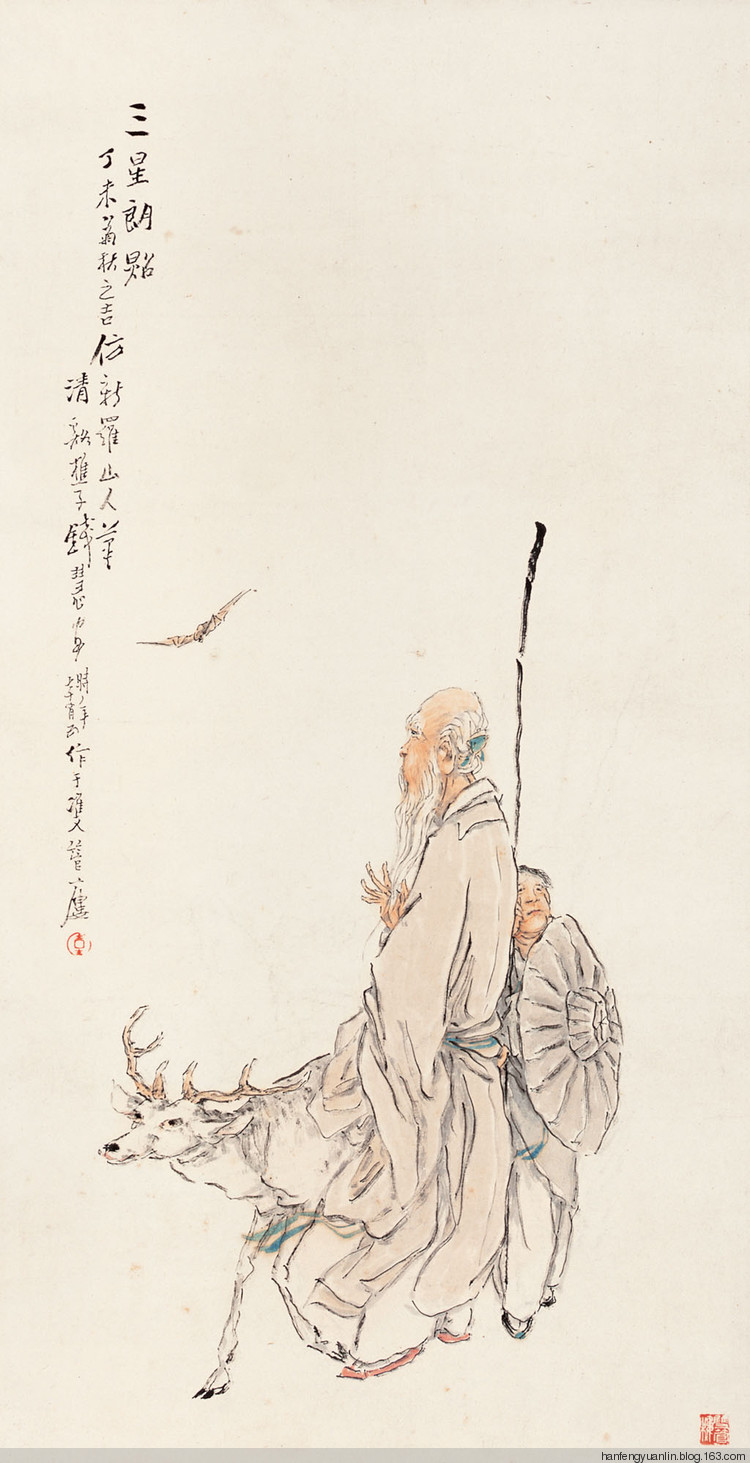 三星朗照
丁未菊秋之吉仿新羅山人筆
清谿樵子錢慧安時年七十有五作于
hanfengyuanlin.blog.163.com